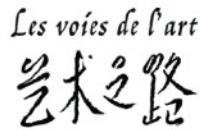 Les voies de l'art
艺术之路